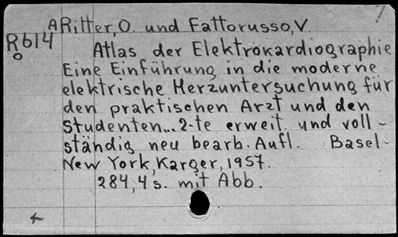 ARitter, O. und Fattorusso, V
R614
Atlas der Elektrokardiographie
Eine Einführung in die moderne
elektrische Herzuntersuchung für
den praktischen Arzt und den
Studenten... 2-te erweit. und voll-
ständig neu bearb. Aufl. Basel-
New York, Karger, 1957.
284,4 s. mit Abb.